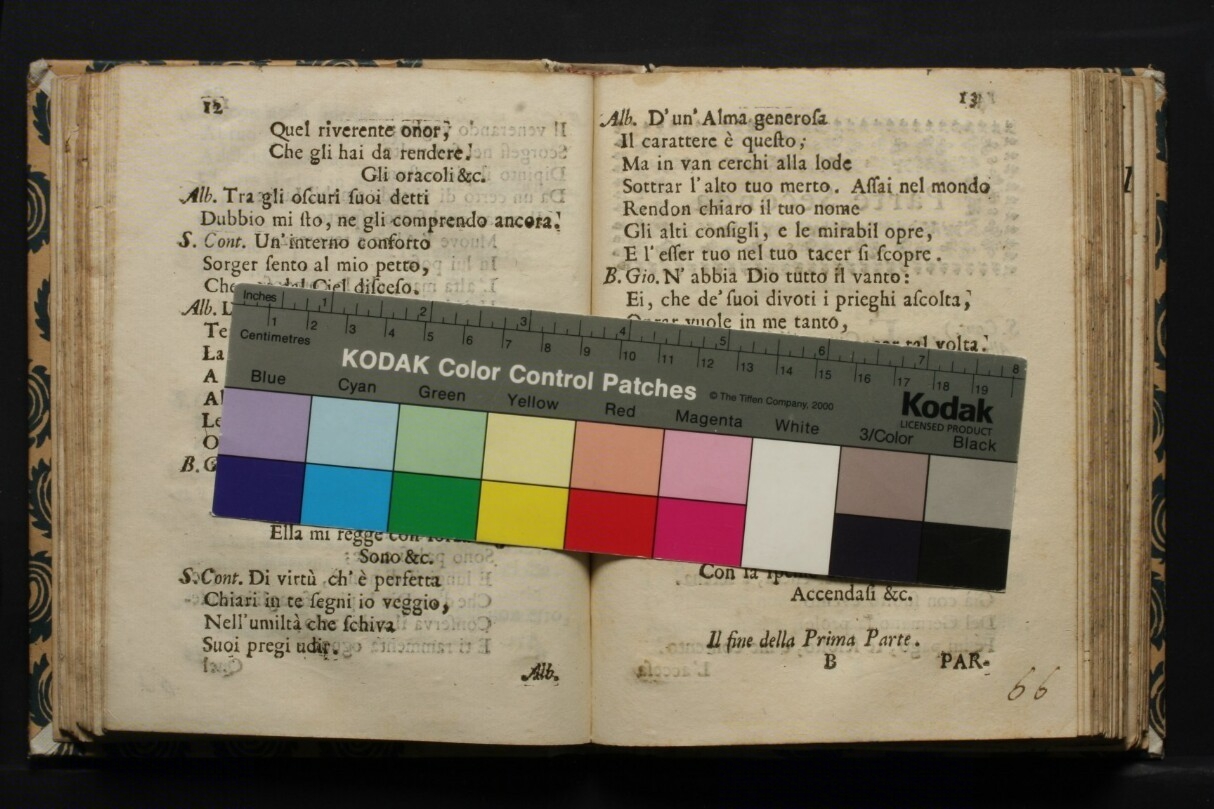 12
Quel riverente onor,
Che gli hai da rendere.
Gli oracoli &c.
Alb. Tra gli oſcuri ſuoi detti
Dubbio mi ſto, ne gli comprendo ancora.
S. Cont. Un'interno conforto
Sorger ſento al mio petto,
Che dal Ciel diſceſo.
Alb.
Te
La
A
Al
Le
O
B. G
Ella mi regge con
Sono &c.
S. Cont. Di virtù ch' è perfetta
Chiari in te ſegni io veggio,
Nell'umiltà che ſchiva
Suoi pregi udir.
Alb.
13
Alb. D' un' Alma generoſa
Il carattere è queſto;
Ma in van cerchi alla lode
Sottrar l'alto tuo merto. Aſſai nel mondo
Rendon chiaro il tuo nome
Gli alti conſigli, e le mirabil opre,
E l' eſſer tuo nel tuo tacer ſi ſcopre.
B. Gio. N' abbia Dio tutto il vanto:
Ei, che de' ſuoi divoti i prieghi aſcolta,
vuole in me tanto,
tal volta.
Con la
Accendaſi &c.
Il fine della Prima Parte.
B
PAR-
66
Inches 1 2 3 4 5 6 7 8
Centimetres 1 2 3 4 5 6 7 8 9 10 11 12 13 14 15 16 17 18 19
KODAK Color Control Patches © The Tiffen Company, 2000
Kodak
LICENSED PRODUCT
Blue Cyan Green Yellow Red Magenta White 3/Color Black